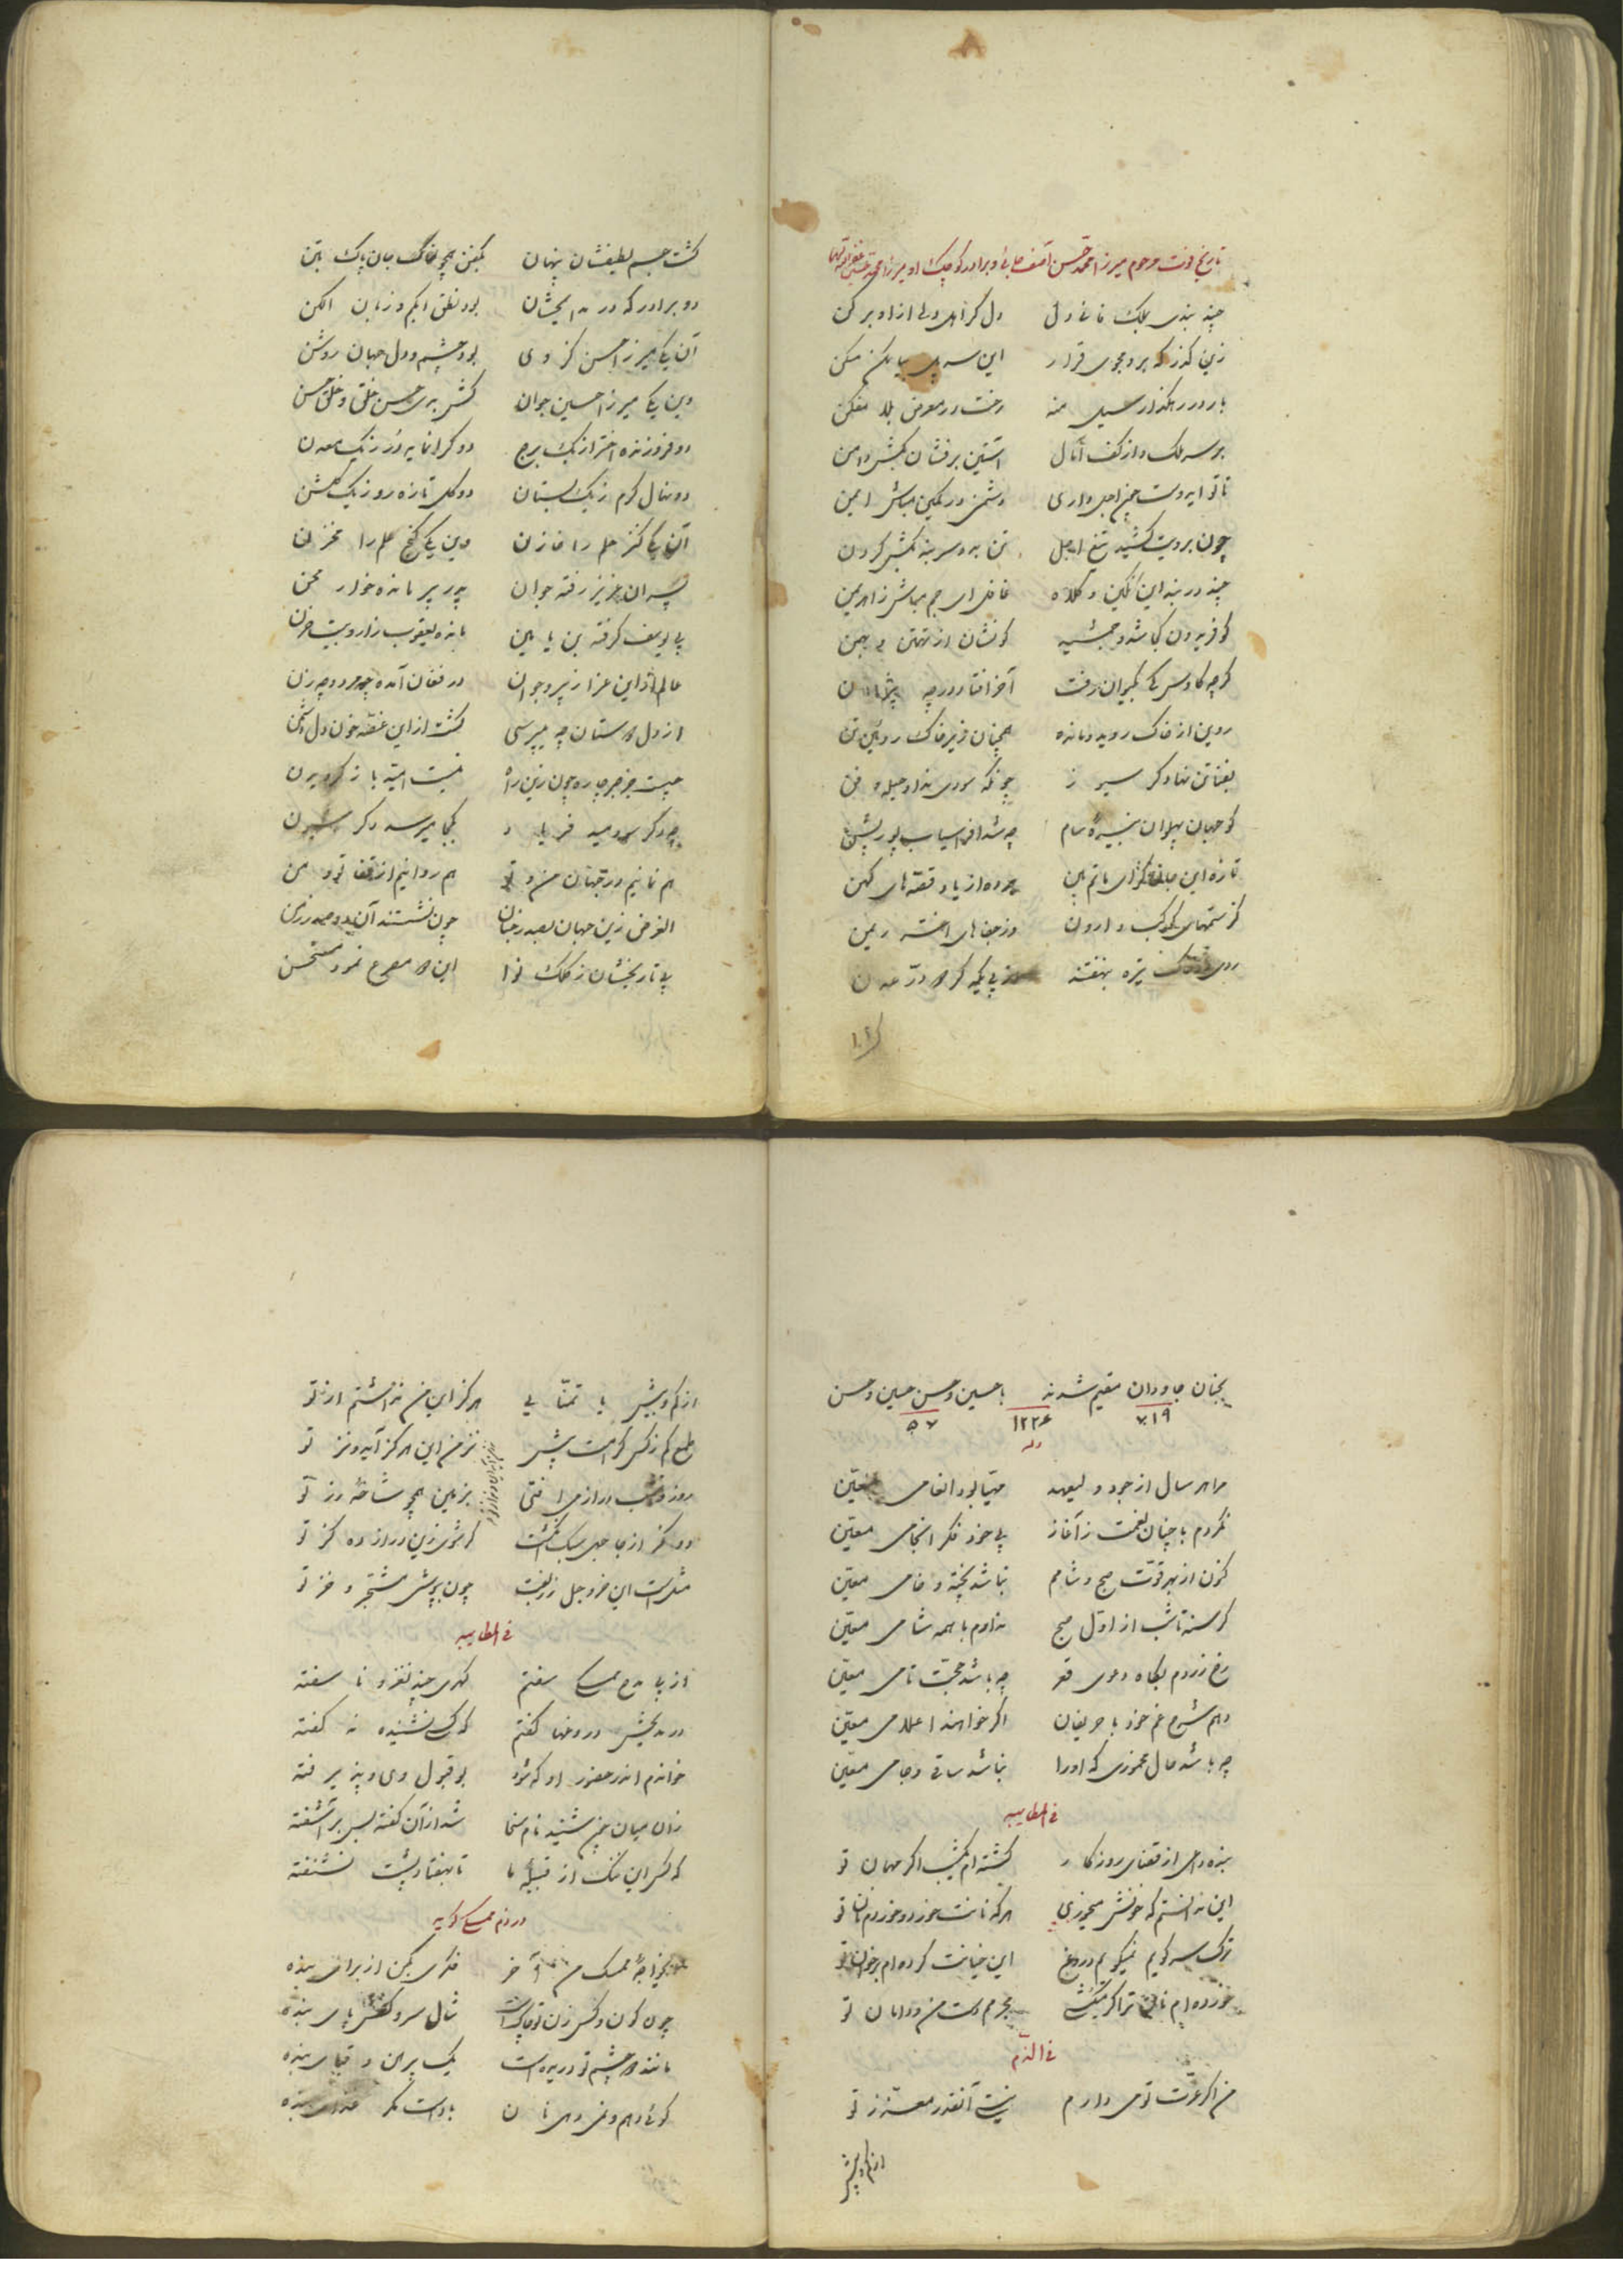 تاریخ فوت مرحوم میرزا محمد حسن آصف جانی و برادر کوچک او میرزا محمد حسین
چند بندی بملک فانی دل دل گر اهل دلی ازاو برکن
زین گذر که برو مجوی قرار این سر پل بیا مکن مسکن
بار در رهگذار سیل منه رخت در معرض بلا مفکن
بر سر ملک و از کف آمال آستین برفشان بکش دامن
تا تو ایدوست چون اجل داری دشمن در کمین مباش ایمن
چون برویت کشید تیغ اجل تن بده سر بنه بکش گردن
چند در بند این نگین و کلاه غافل ای جم مباش ز اهریمن
کو فریدون کجا شد و جمشید کو نشان از تهمتن و بهمن
گرچه کاوس کی بکیوان رفت آخر افتاد در چه بیژن
روین از خاک روید و مانده همچنان زیر خاک روئین تن
بفنا تن نهاد گر سیر ز چونکه سودی نداد حیله و فن
کو جهان پهلوان نبیره سام چه شد افراسیاب پور پشن
تازه این جانگزای ماتم بین برده از یاد قصه‌های کهن
کز ستمهای کوکب وارون وز جفاهای اختر ریمن
روی در خاک تیره بنهفتند ز پی یکدگر دو در عدن
گشت جسم لطیفشان پنهان بکفن همچو خاک جان پاک بتن
دو برادر که در مدایحشان بود نطق ابکم و زبان الکن
آن یکی میرزا حسن کز وی بود چشم و دل جهان روشن
وین یکی میرزا حسین جوان کش بدی حسن خلق و خلق حسن
دو فروزنده اختر از یک برج دو گرانمایه در ز یک معدن
دو نهال کرم ز یک بستان دو گل تازه رو ز یک گلشن
آن یکی کنز حلم را خازن وین یکی گنج علم را مخزن
پسران عزیز رفته جوان پدر پیر مانده خوار محن
بی یوسف گرفته بن یامین مانده یعقوب زار و بیت حزن
عالم از این عزا ز پیر و جوان در فغان آمده چه مرد و چه زن
از دل دوستان چه میپرسی گشت از این غصه خون دل دشمن
چیست جز جز چاره چون زین راه نیست امید باز گردیدن
چه دگر سودمند فریاد و بکجا میرسد دگر شیون
هم نمانیم در جهان من و تو هم روانیم از قفا تو و من
الغرض زین جهان بصدر جنان چون نشستند آن دو صدر زمن
پی تاریخشان ز کلک نوا این دو مصرع نمود مستحسن
بجنان جاودان مقیم شدند با حسین و حسن حسین و حسن
۷۱۹ ۱۲۲۶ ۵۰۷
وله
مرا هر سال از جود ولیعهد مهیا بود انعامی معین
نکردم با چنان نعمت ز آغاز پی خود فکر انجامی معین
کنون از بهر قوت صبح و شامم نباشد پخته و خامی معین
گرسنه تا شب از اول صبح ندارم با همه شامی معین
رخ زردم بگاه دعوی فقر چه باشد حجت تامی معین
دهم شرح غم خود با حریفان اگر خواهند اعلامی معین
چه باشد حال مخموری که اورا نباشد ساقی و جامی معین
فی المطایبه
بنده دامی از قضای روزگار گشته‌ام یکشب اگر مهمان تو
این ندانستم که خونش میخوری هرکه نانت خورد و خوردم نان تو
ترک سر گویم نمیگویم دروغ این خیانت کرده‌ام بر خوان تو
خورده‌ام نان ترا گر یکشبی مجرمم دست من و دامان تو
فی الذم
من اگر عزت تو می دارم نیست آنقدر معتزز تو
از کم و بیش
از کم و بیش با تمنائی هرگز این من نداشتم از تو
طمع کم ز کس گرامت پیش نز من این هرگز آید و نز تو
روز و شب در ازمی افتی بزمین همچو شاخه رز تو
گر شوی زین دراز ده گز تو
مثل است این خر و جل زربفت چون بپوشی مشجر و خز تو
فی المطایبه
از پی مدح ممسکی سفتم گهری چند نغز و نا سفته
در مدیحش دروغها گفتم که کس نشنیده نه گفته
خواندم اندر حضور او که شود بو قبول وی و پذیرفته
زان میان چون شنید نام سخا شد از آن گفته بس بر آشفته
که کس این ننگ از قبیله ما تا بهفتاد پشت نشنفته
در ذم ممسک گوید
بخواجه ممسک من آخر فکری بکن از برای بنده
چون کون و کس زن تو چاک است شال سر و کفش پای بنده
مانند دو چشم تو دریده است یک پیرهن و قبای بنده
گوئی دهم و نمی دهی نان باد است مگر غذای بنده